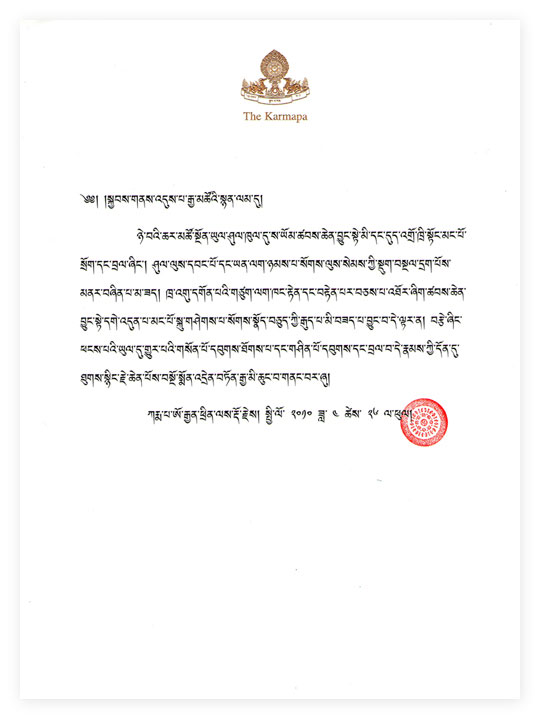 The Karmapa
༄༅། །སྐྱབས་གནས་འདུས་པ་རྒྱ་མཚོའི་སྙན་ལམ་དུ།
ཉེ་བའི་ཆར་མཚོ་སྔོན་ཡུལ་ཤུལ་ཁུལ་དུ་ས་ཡོམ་ཚབས་ཆེན་བྱུང་སྟེ་མི་དང་དུད་འགྲོ་ཁྲི་སྟོང་མང་པོ་
སྲོག་དང་བྲལ་ཞིང་། ཤུལ་ལུས་དབང་པོ་དང་ཡན་ལག་ཉམས་པ་སོགས་ལུས་སེམས་ཀྱི་སྡུག་བསྔལ་དྲག་པོས་
མནར་བཞིན་པ་མ་ཟད། ཁྲ་འགུ་དགོན་པའི་གཙུག་ལག་ཁང་རྟེན་དང་བརྟེན་པར་བཅས་པ་འཐོར་ཞིག་ཚབས་ཆེན་
བྱུང་སྟེ་དགེ་འདུན་པ་མང་པོ་སྐུ་གཤེགས་པ་སོགས་སྣོད་བཅུད་ཀྱི་རྒུད་པ་མི་བཟད་པ་བྱུང་བ་དེ་ལྟར་ན། བརྩེ་ཞིང་
ཕངས་པའི་ཡུལ་དུ་གྱུར་པའི་གསོན་པོ་དབུགས་ཐོགས་པ་དང་གཤིན་པོ་དབུགས་དང་བྲལ་བ་དེ་རྣམས་ཀྱི་དོན་དུ་
ཐུགས་སྙིང་རྗེ་ཆེན་པོས་བསྔོ་སྨོན་འདྲེན་བཏོན་རྒྱ་མི་ཆུང་བ་གནང་བར་ཞུ།
ཀརྨ་པ་ཨོ་རྒྱན་ཕྲིན་ལས་རྡོ་རྗེས། སྤྱི་ལོ་ ༢༠༡༠ ཟླ་ ༤ ཚེས་ ༢༦ ལ་ཕུལ།